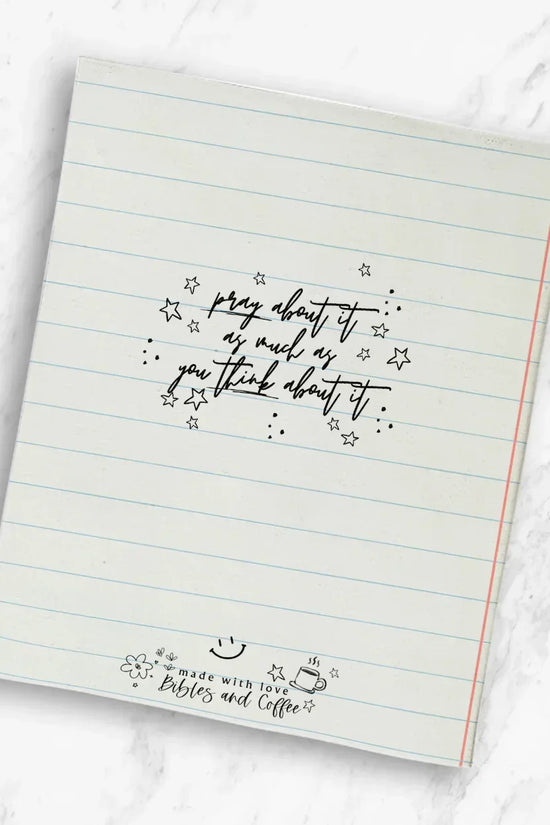 pray about it
as much as
you think about it
made with love
Bibles and Coffee